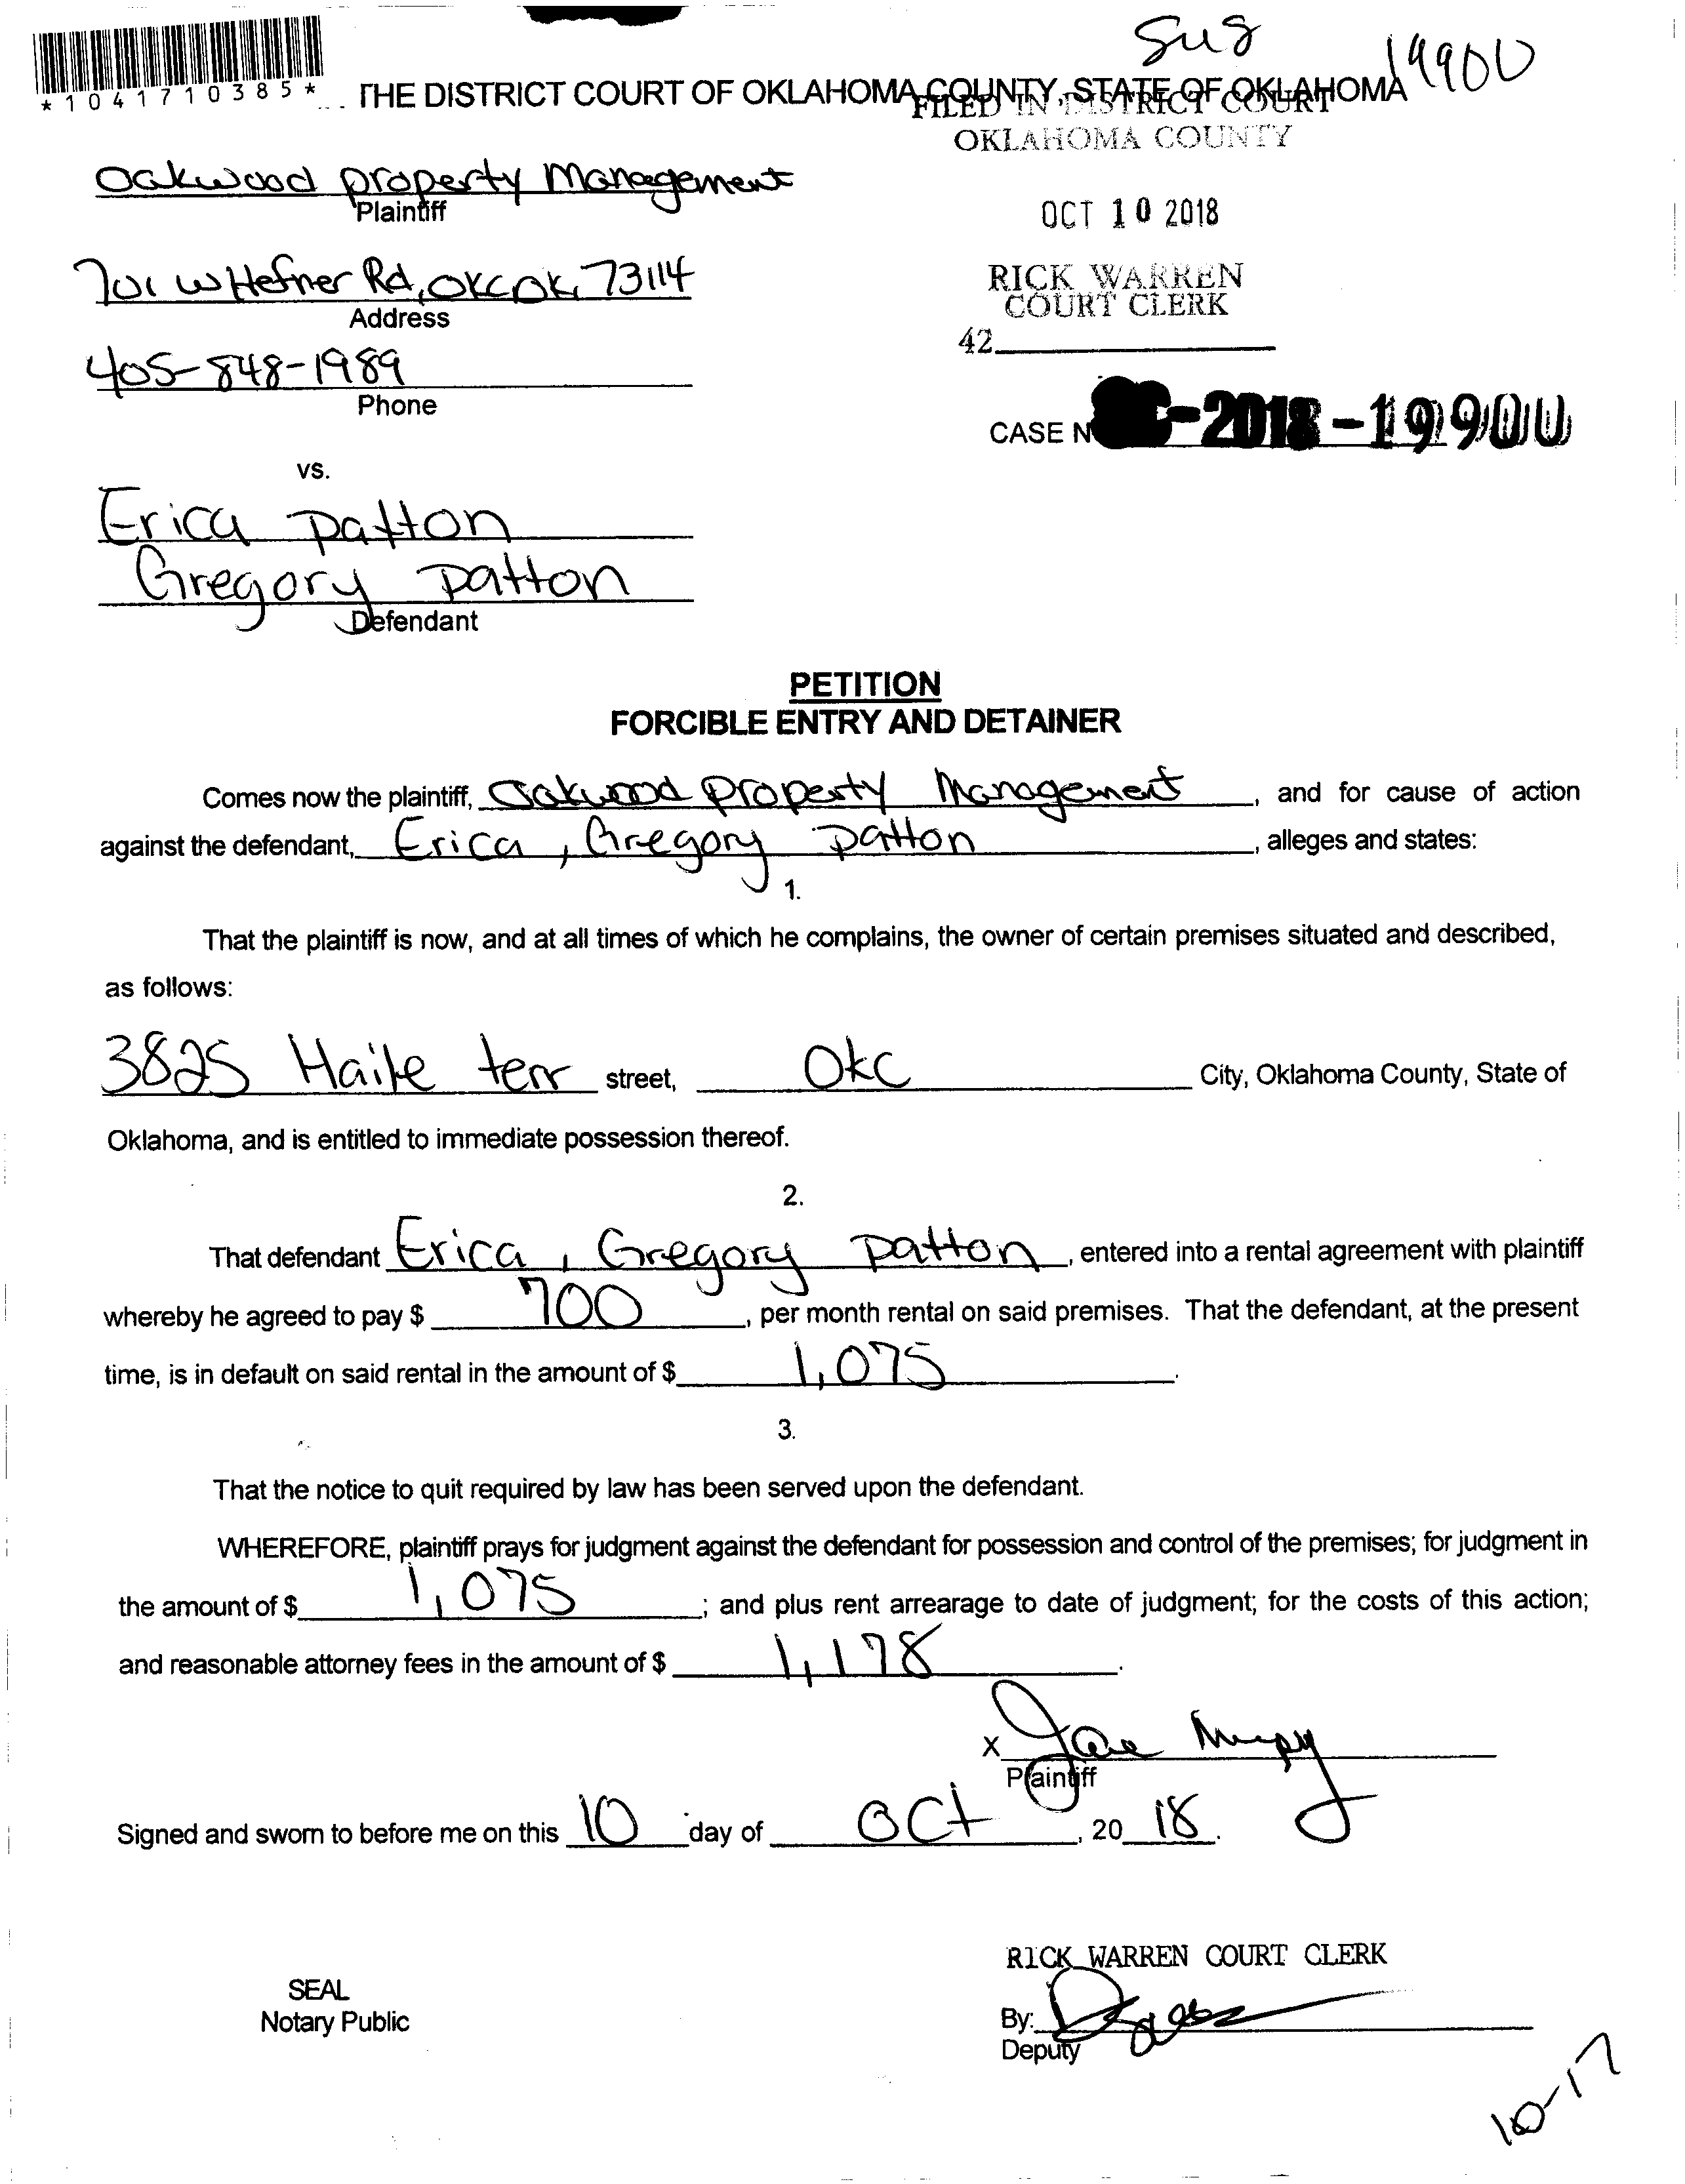 Sug
19900
*1041710385*
THE DISTRICT COURT OF OKLAHOMA COUNTY, STATE OF OKLAHOMA
FILED IN DISTRICT COURT
OKLAHOMA COUNTY
Oakwood property Management
Plaintiff
OCT 10 2018
701 W Hefner Rd, OKC OK, 73114
Address
RICK WARREN
COURT CLERK
42
405-848-1989
Phone
CASE N -2018-19900
vs.
Erica Patton
Gregory Patton
Defendant
PETITION
FORCIBLE ENTRY AND DETAINER
Comes now the plaintiff, Oakwood Property Management, and for cause of action
against the defendant, Erica, Gregory Patton, alleges and states:
1.
That the plaintiff is now, and at all times of which he complains, the owner of certain premises situated and described,
as follows:
3825 terr street, OKC City, Oklahoma County, State of
Oklahoma, and is entitled to immediate possession thereof.
2.
That defendant Erica, Gregory Patton, entered into a rental agreement with plaintiff
whereby he agreed to pay $ 700, per month rental on said premises. That the defendant, at the present
time, is in default on said rental in the amount of $ 1,075.
3.
That the notice to quit required by law has been served upon the defendant.
WHEREFORE, plaintiff prays for judgment against the defendant for possession and control of the premises; for judgment in
the amount of $ 1,075; and plus rent arrearage to date of judgment; for the costs of this action;
and reasonable attorney fees in the amount of $ 1,178.
X
Plaintiff
Signed and sworn to before me on this 10 day of Oct, 20 18.
RICK WARREN COURT CLERK
SEAL
Notary Public
By:
Deputy
10-17